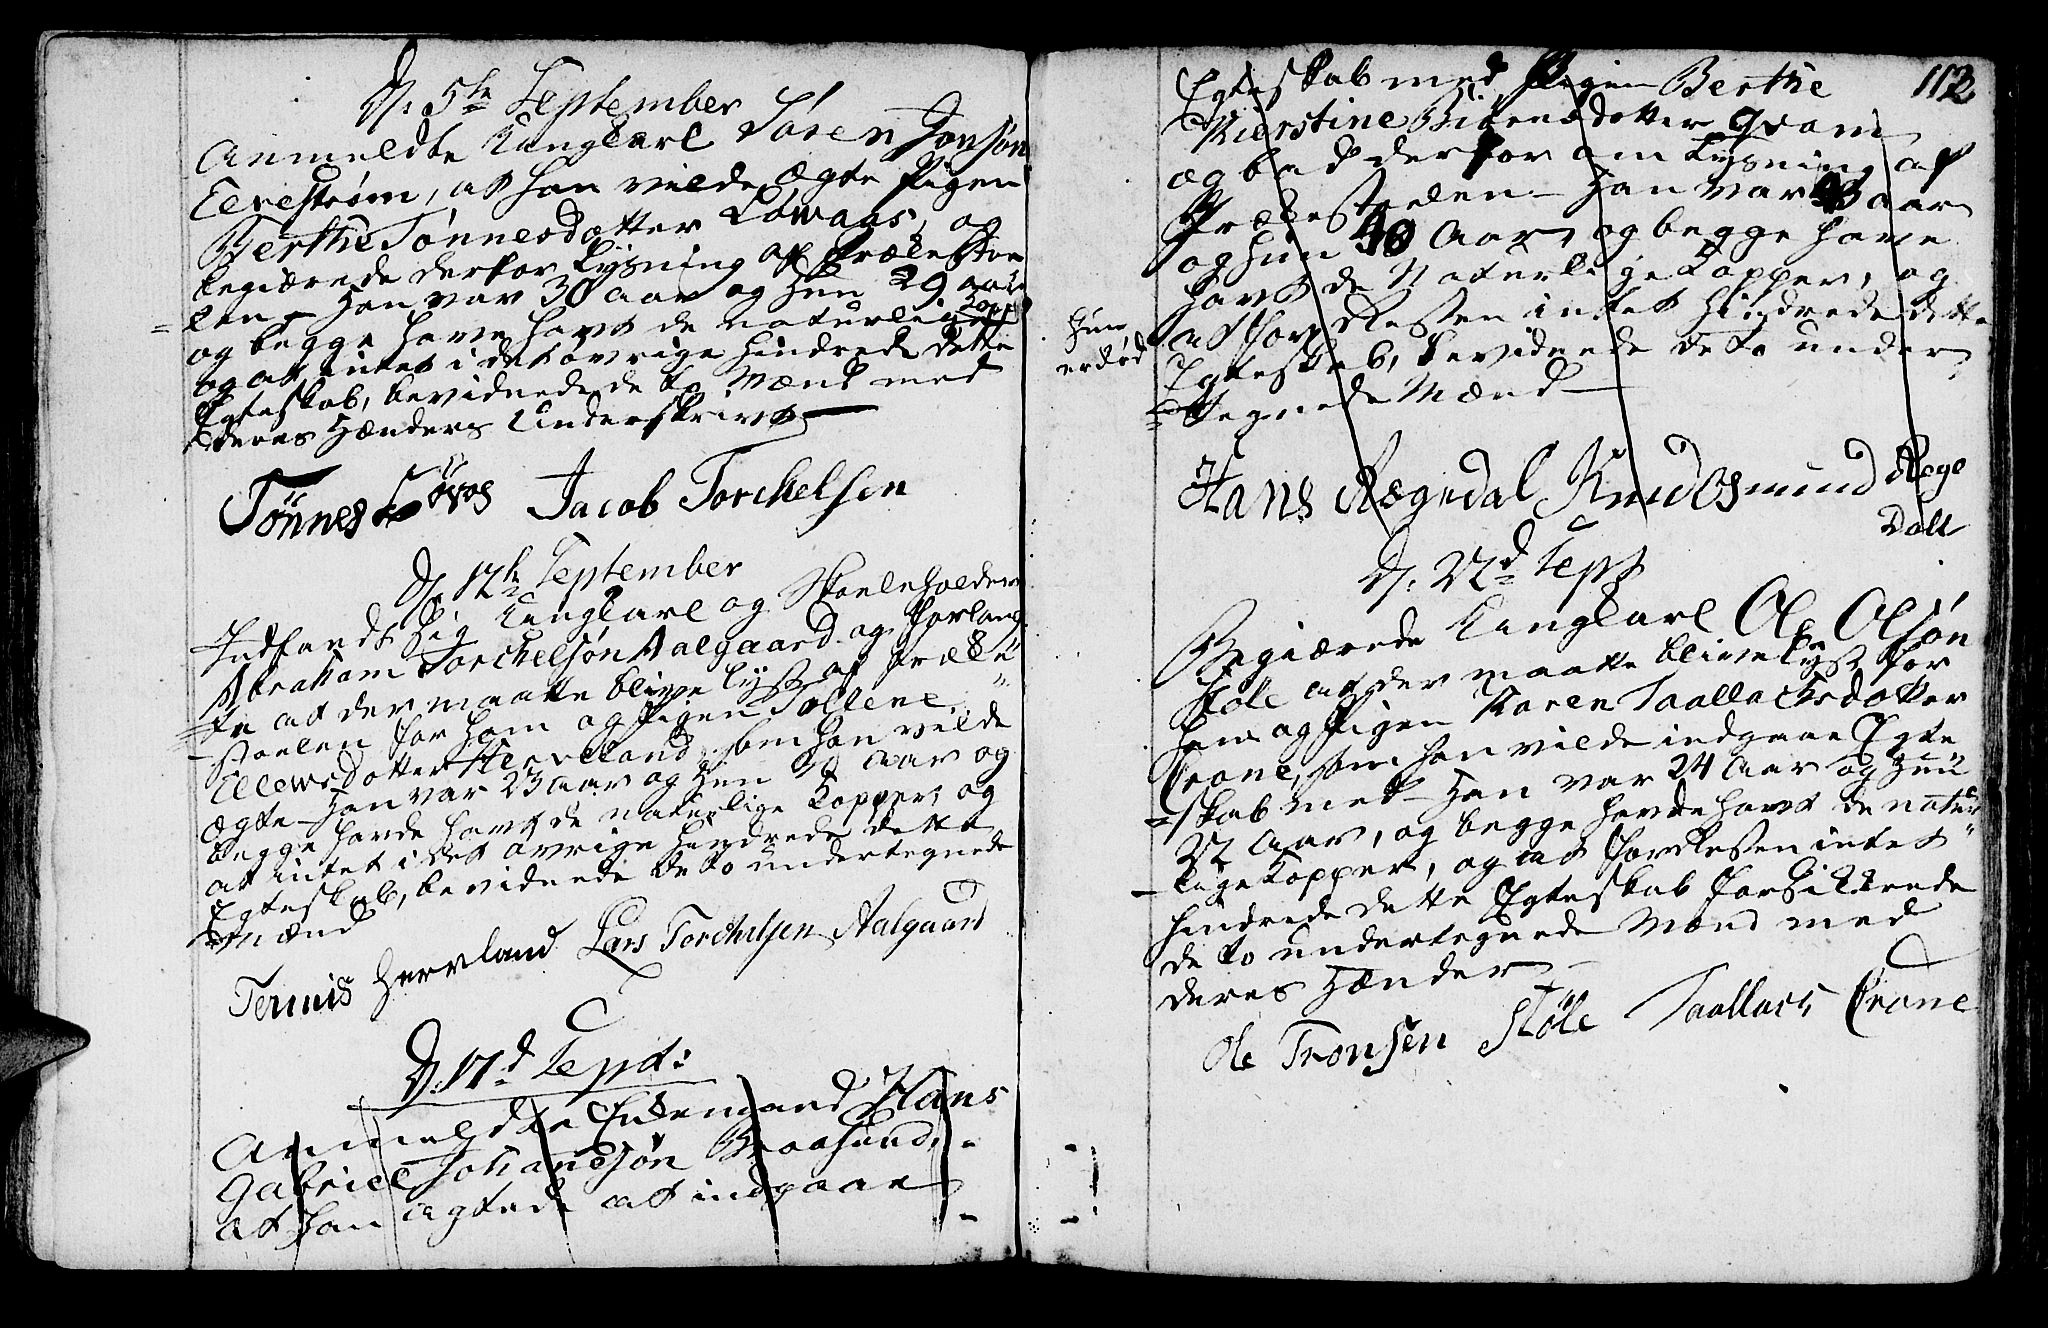 D: 5te September
Anmeldte Ungkarl Sören Jonsøn
Eerestrøm, at han vilde ægte Pigen
Berthe Tönnesdatter Lowaas, og
begiærede derfor Lysning af Prækesto-
len - Han var 30 aar og Hun 29 aar
og begge have havt de naturlige Kopp
og at intet i det øvrige hindrede dette
Egteskab, bevidnede de to Mænd med
deres Hænders Underskrivt
Tönnes Lövos Jacob Torchelsen
D. 12te September
Indfandt sig Ungkarl og Skoeleholder
Abraham Torchelsøn Aalgaard og forlang-
te at der maatte blive lyst af Præke-
stoelen for ham og Pigen Tollene
Ellewsdatter Herveland som han vilde
ægte - Han var 23 aar og Hun aar og
begge havde havt de naturlige Kopper, og
at intet i det øvrige hindrede dette
Egteskab, bevidnede de to undertegnede
Mænd
Tennis Hervland Lars Torchelsen Aalgaard
D. 17d Sept:
Anmeldte Enkemand Hans
Gabriel Johannesøn Braasund,
at han agtede at indgaae
112
Egteskab med Pigen Berthe
Kierstine datter Qvam
og bad derfor om Lysning af
Prækestoelen - Han var aar
og hun 40 Aar, og begge have
havt de Naturlige Kopper, og
at for Resten intet hindrede dette
Egteskab, bevidnede de to under-
tegnede Mænd
hun
er død
Hans Rægedal Knud Osmund Rege
Dall
D: 22d Sept
Begiærede Ungkarl Ole Olsøn
Støle at der maatte blive lyst for
ham og Pigen Karen Taallacksdatter
Crone, som han vilde indgaae Egte-
skab med - Han var 24 Aar og Hun
22 Aar, og begge havde havt de natur-
lige Kopper, og at for Resten intet
hindrede dette Egteskab forsikkrede
de to undertegnede Mænd med
deres Hænder
Ole Tronsen Støle Taallach Crone